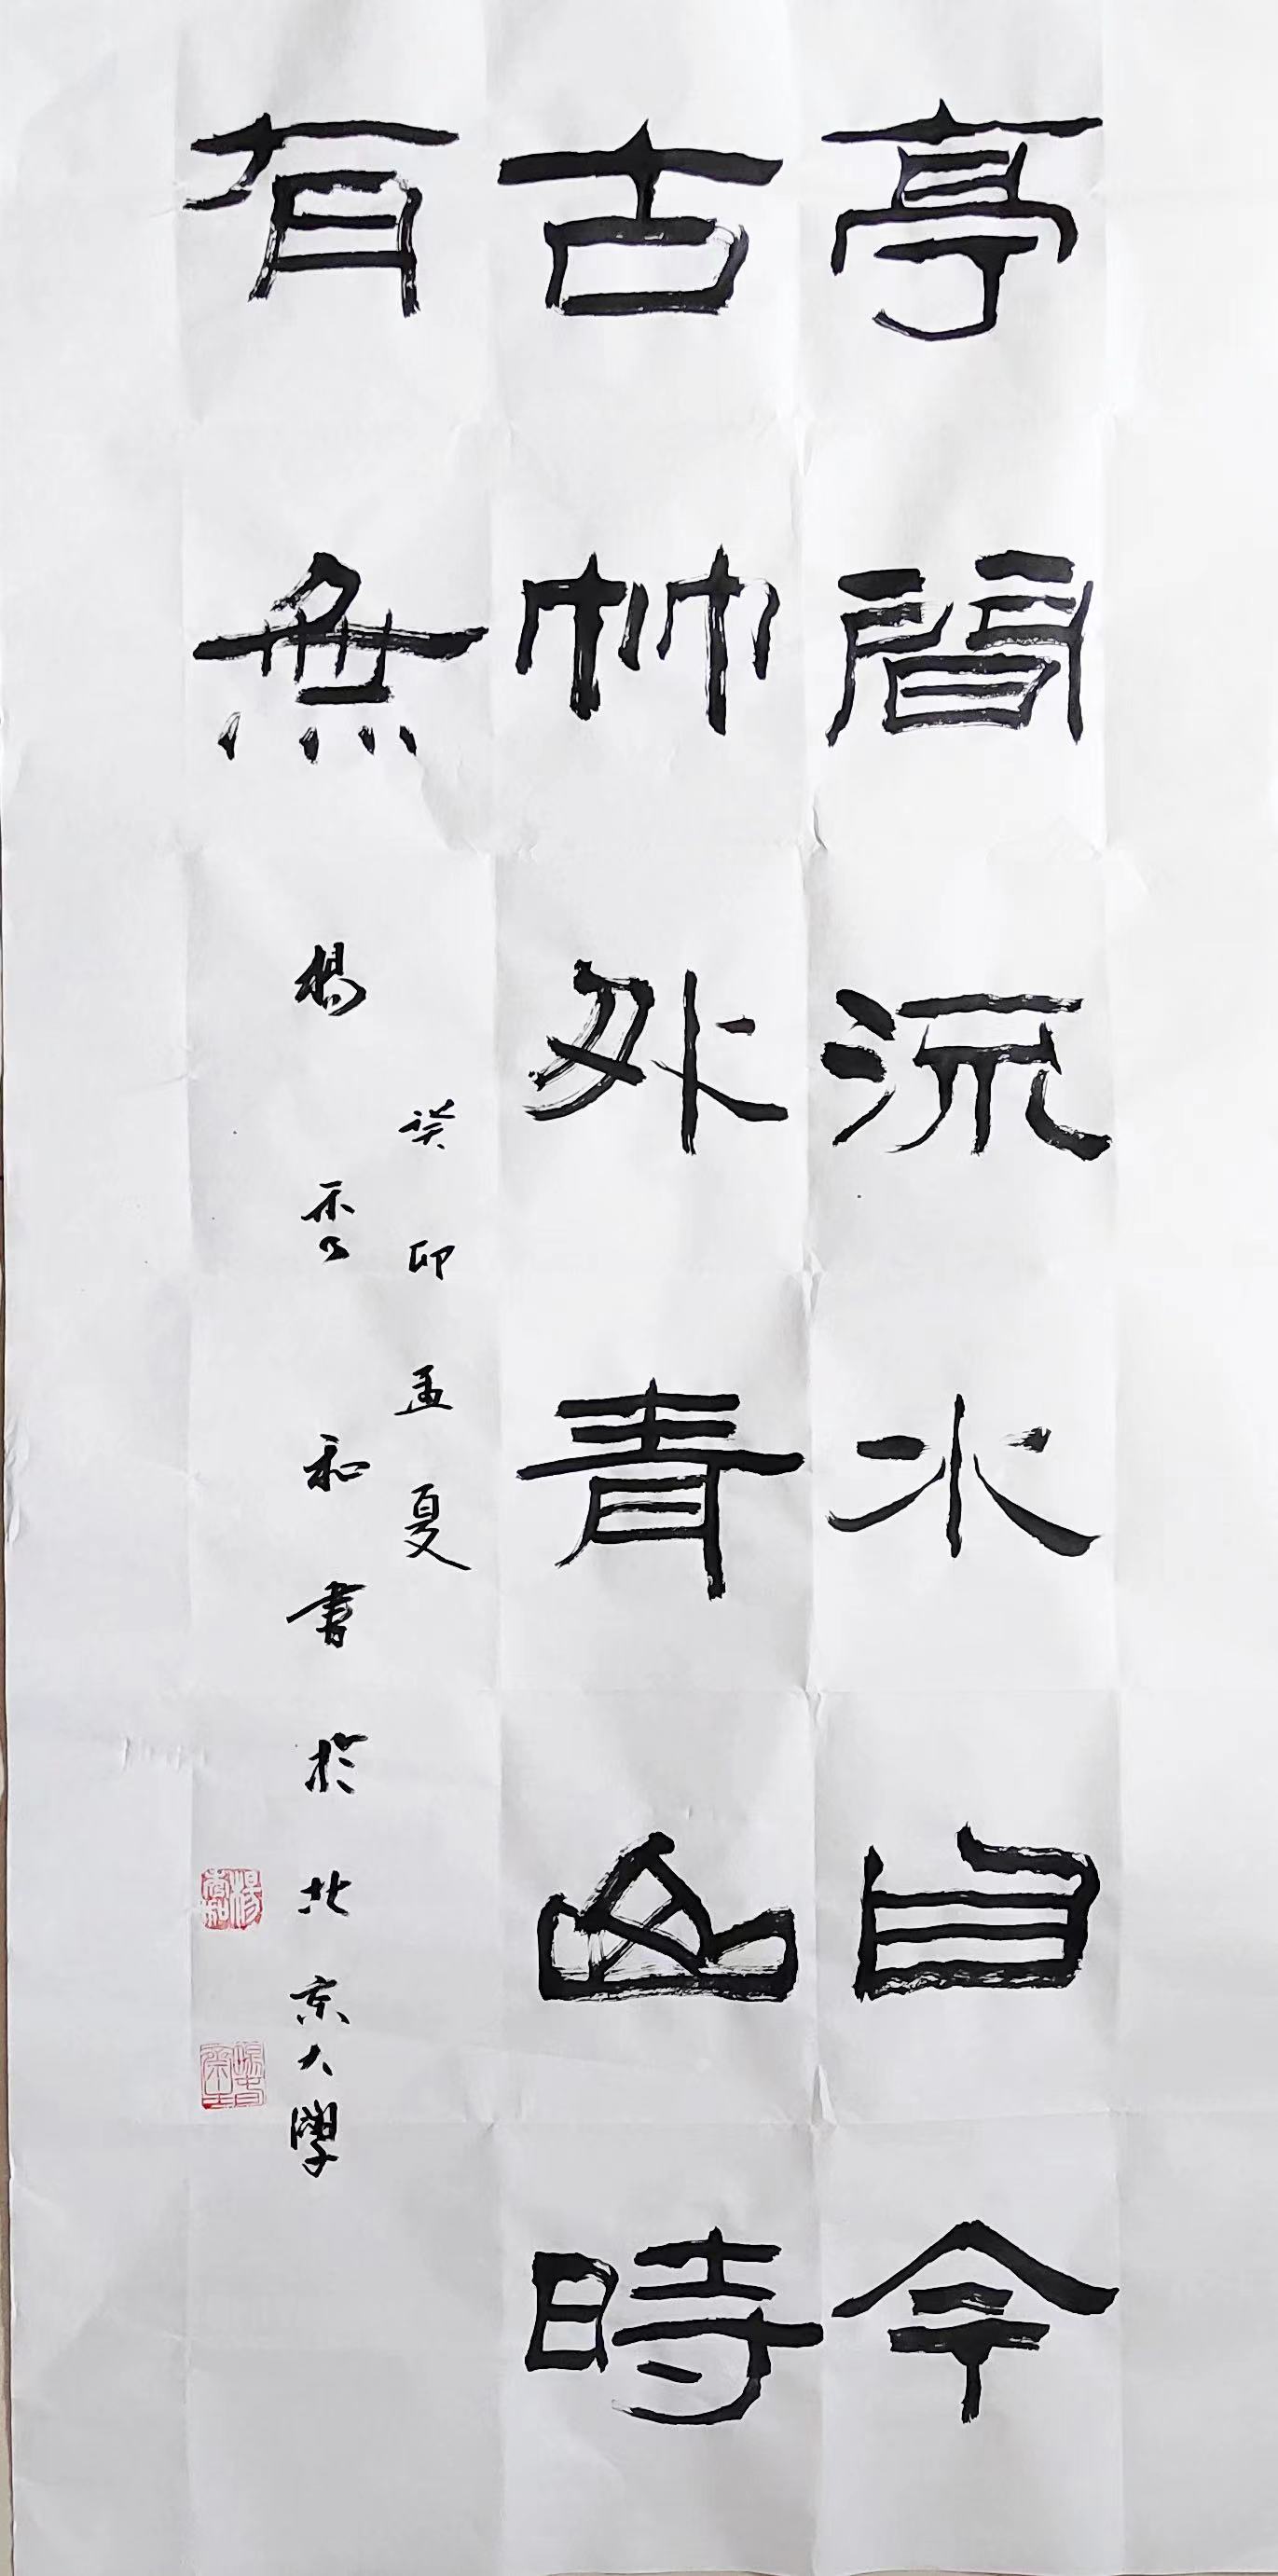 亭間流水自今
古竹外青山時
有無
癸卯孟夏
楊秀和書於北京大學
楊秀和